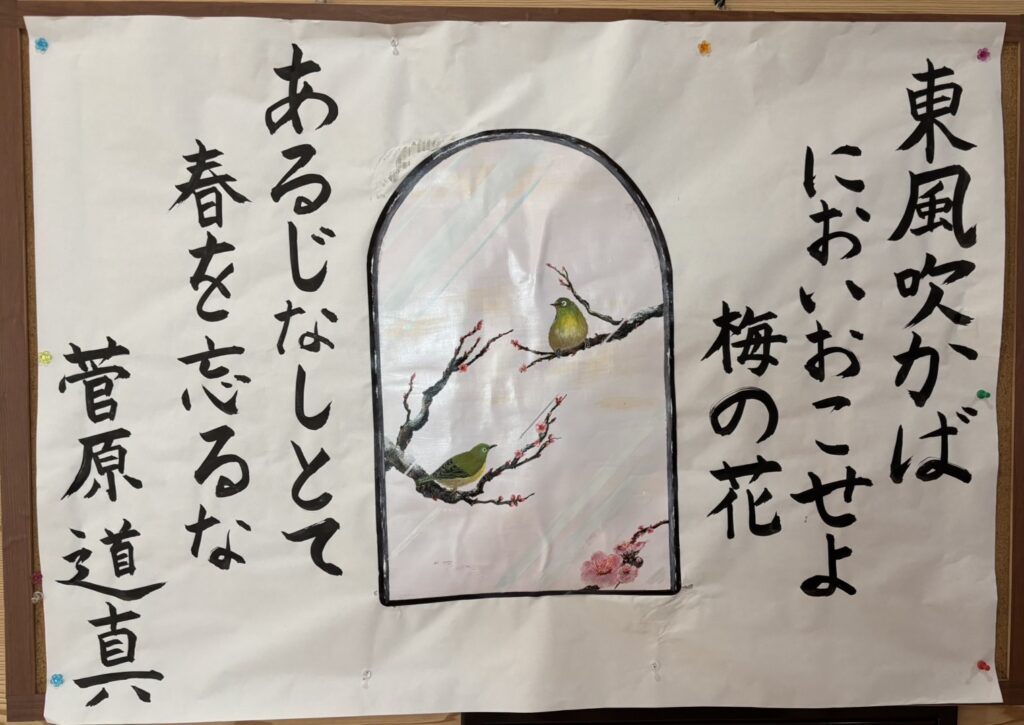 東風吹かば
においおこせよ
梅の花
あるじなしとて
春を忘るな
菅原道真